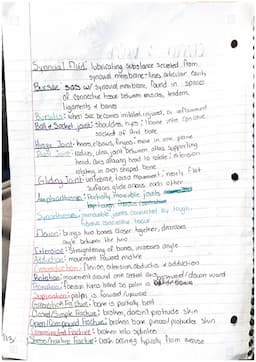 Synovial Fluid: lubricating substance secreted from
synovial membrane-lines articular cavity
Bursae: sacs w/ synovial membrane, found in spaces
of connective tissue between muscles, tendons,
ligaments & bones
Bursitis: when sac becomes irritated, injured, or inflammed
Ball & Socket joint: shoulders, hips: bone into concave
socket of 2nd bone
Hinge Joint: knees, elbows, fingers: move in one plane
Pivot Joint: radius, ulna, joint between atlas supporting
head, axis allowing head to rotate: extension
rotating in arch shaped bone
Gliding Joint: vertebrae, tarsal movement: nearly flat
surfaces glide across each other
Amphiarthroses: Partially moveable joints
Synarthroses: immovable joints connected by tough,
fibrous connective tissue
Flexion: brings two bones closer together, decreases
angle between the two
Extension: Straightening of bones, increases angle
Abduction: movement
Circumduction: flexion, extension, abduction, & adduction
Rotation: movement around one central axis
Pronation: forearm turns hand so palm is
Supination: palm is forward/upward
Greenstick Fracture: bone is partially bent
Closed/Simple Fracture: broken, doesn't protrude skin
Open/Compound Fracture: broken bone pierces/protrudes skin
Comminuted Fracture: broken into splinters